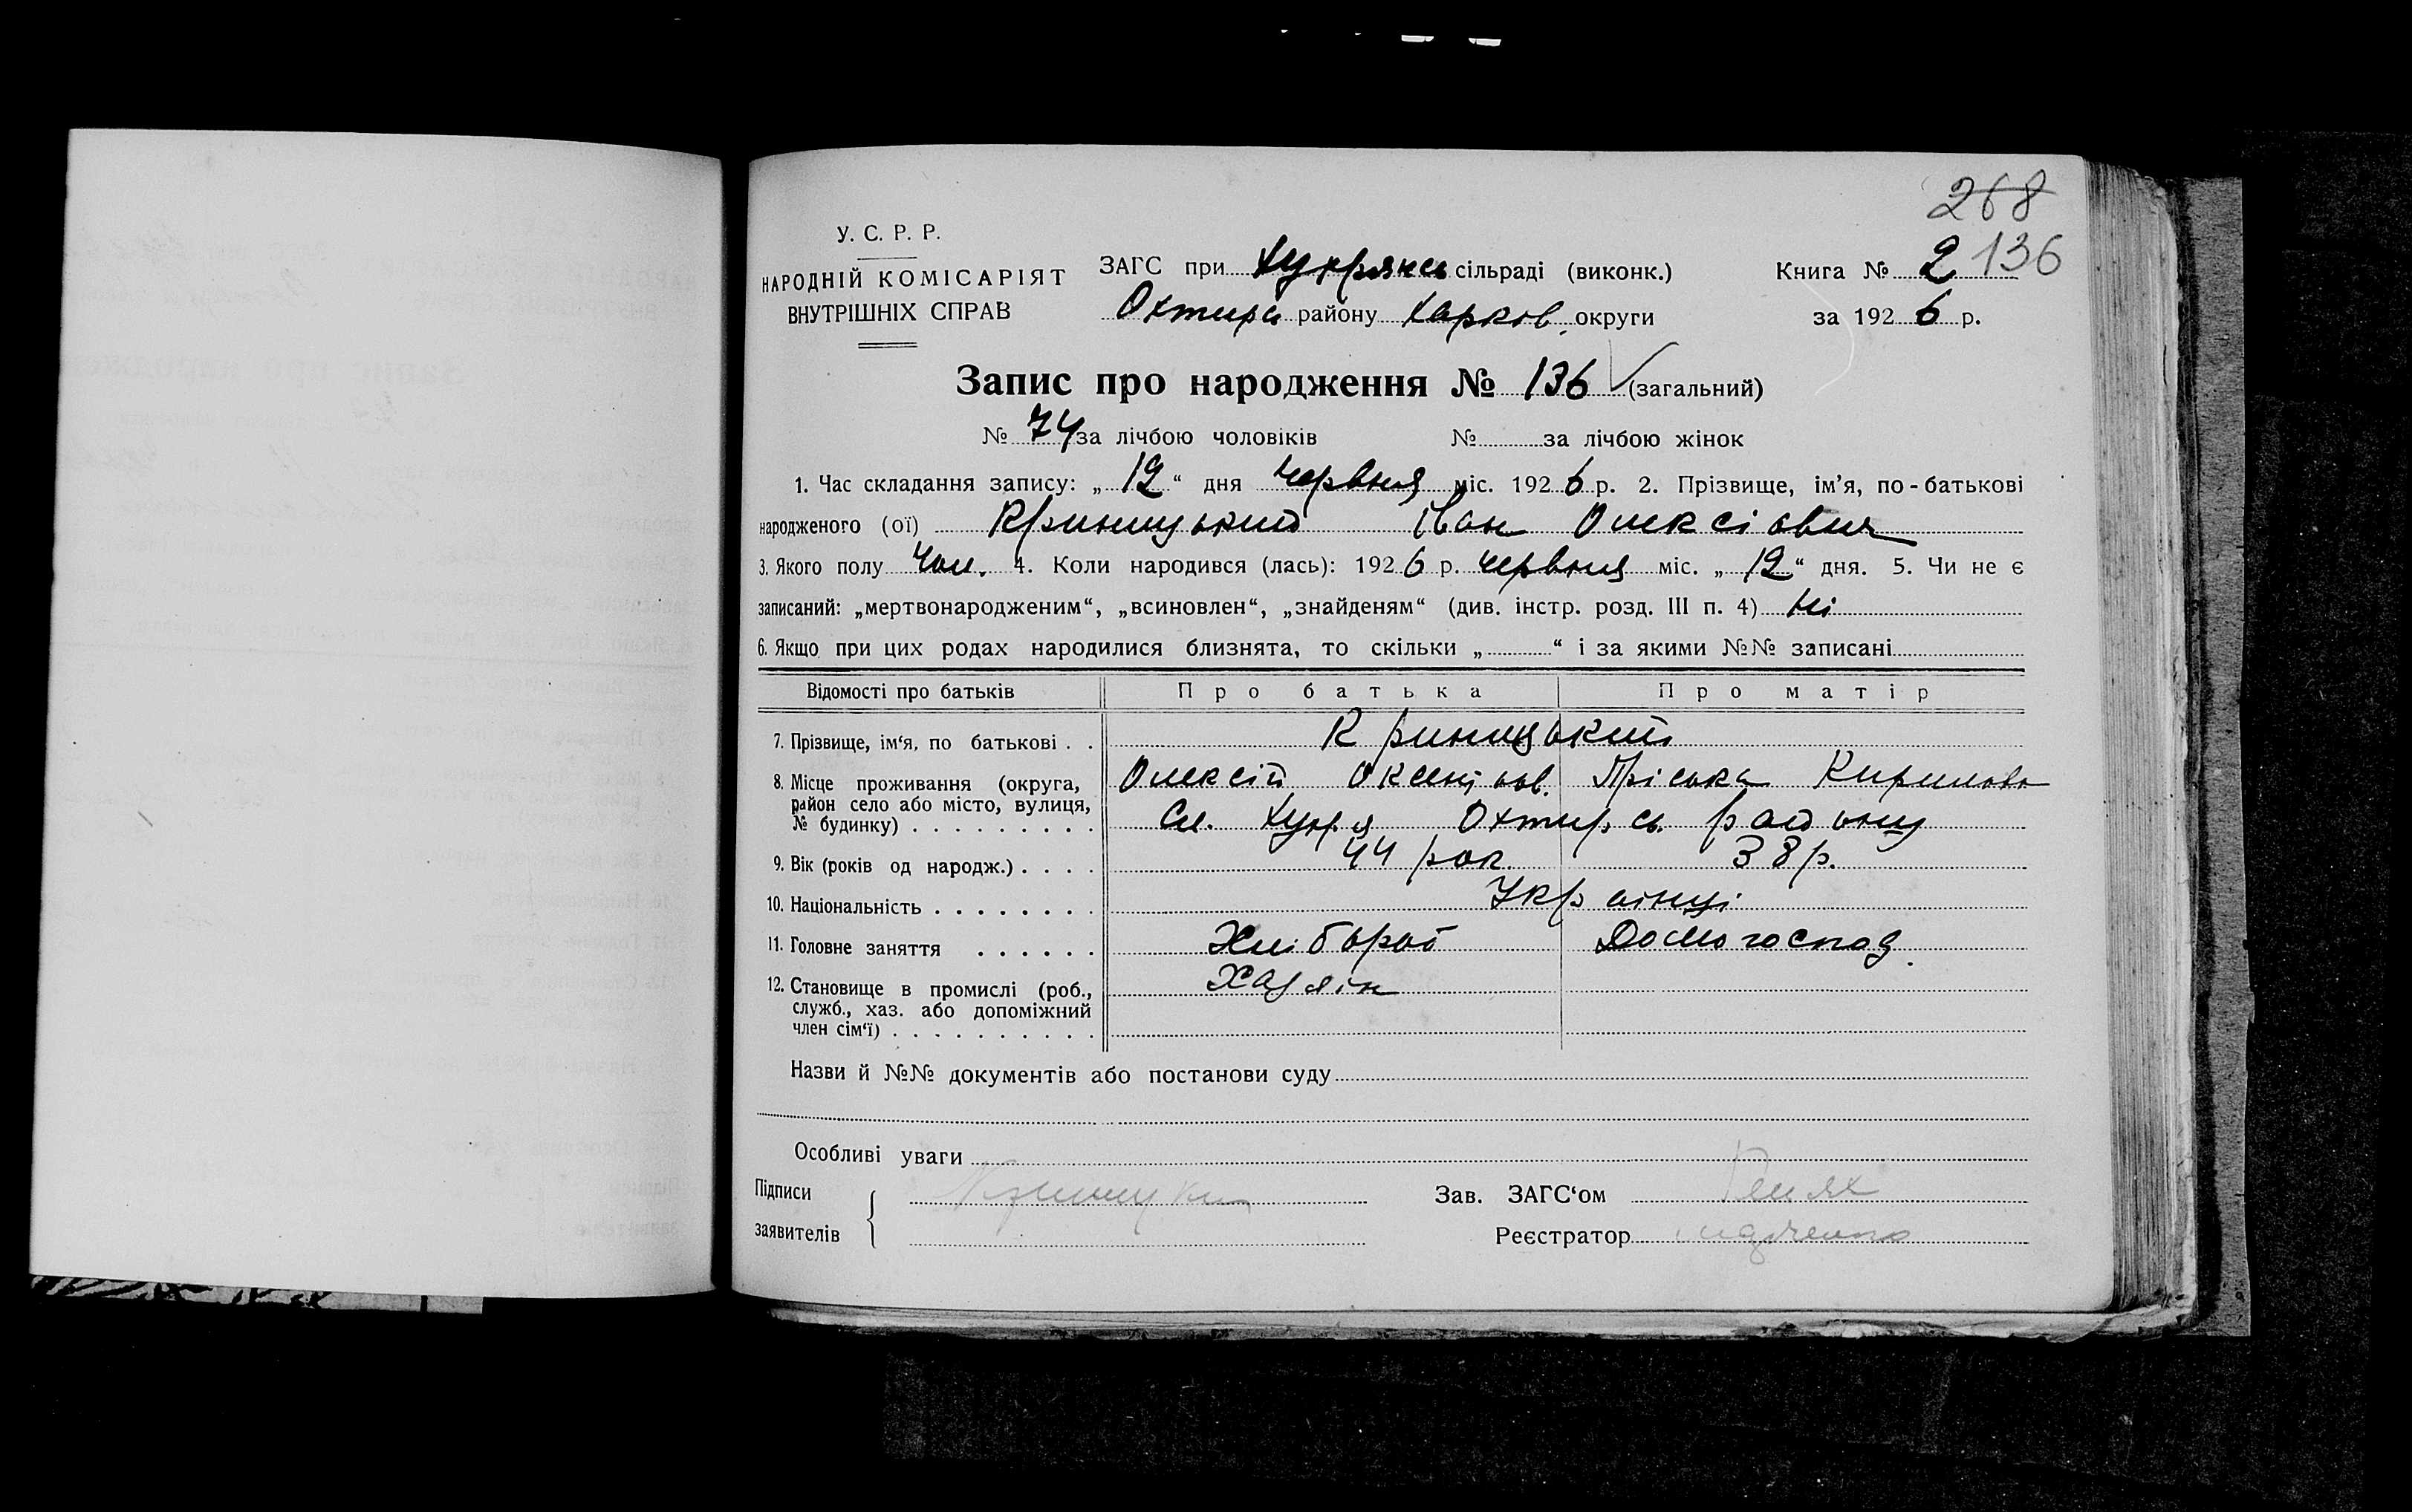 268
У. С. Р. Р.
НАРОДНІЙ КОМІСАРІЯТ
ВНУТРІШНІХ СПРАВ
ЗАГС при Хухрянсь сільраді (виконк.)
Охтирс району Харков. округи
Книга № 2 136
за 1926 р.
Запис про народження № 136 (загальний)
№ 74 за лічбою чоловіків № за лічбою жінок
1. Час складання запису: „ 12 “ дня червня міс. 1926 р. 2. Прізвище, ім’я, по-батькові
народженого (ої) Криницький Іван Олексієвич
3. Якого полу Чол. 4. Коли народився (лась): 1926 р. червня міс. „ 12 “ дня. 5. Чи не є
записаний: „мертвонародженим“, „всиновлен“, „знайденям“ (див. інстр. розд. III п. 4) Ні
6. Якщо при цих родах народилися близнята, то скільки „ “ і за якими №№ записані
Відомості про батьків Про батька Про матір
7. Прізвище, ім‘я, по батькові . . Криницький
8. Місце проживання (округа, Олексій Оксент. Пріська Кирилова
район село або місто, вулиця, Сл. Хухря Охтирсь району
№ будинку) . . . . . . . . .
9. Вік (років од народж.) . . . . 44 рок 38 р.
10. Національність . . . . . . . . Українці
11. Головне заняття . . . . . . Хлібороб Домогоспод.
12. Становище в промислі (роб., Хазяїн
служб., хаз. або допоміжний
член сім‘ї) . . . . . . . . . .
Назви й №№ документів або постанови суду
Особливі уваги
Підписи
заявителів
Зав. ЗАГС‘ом
Реєстратор